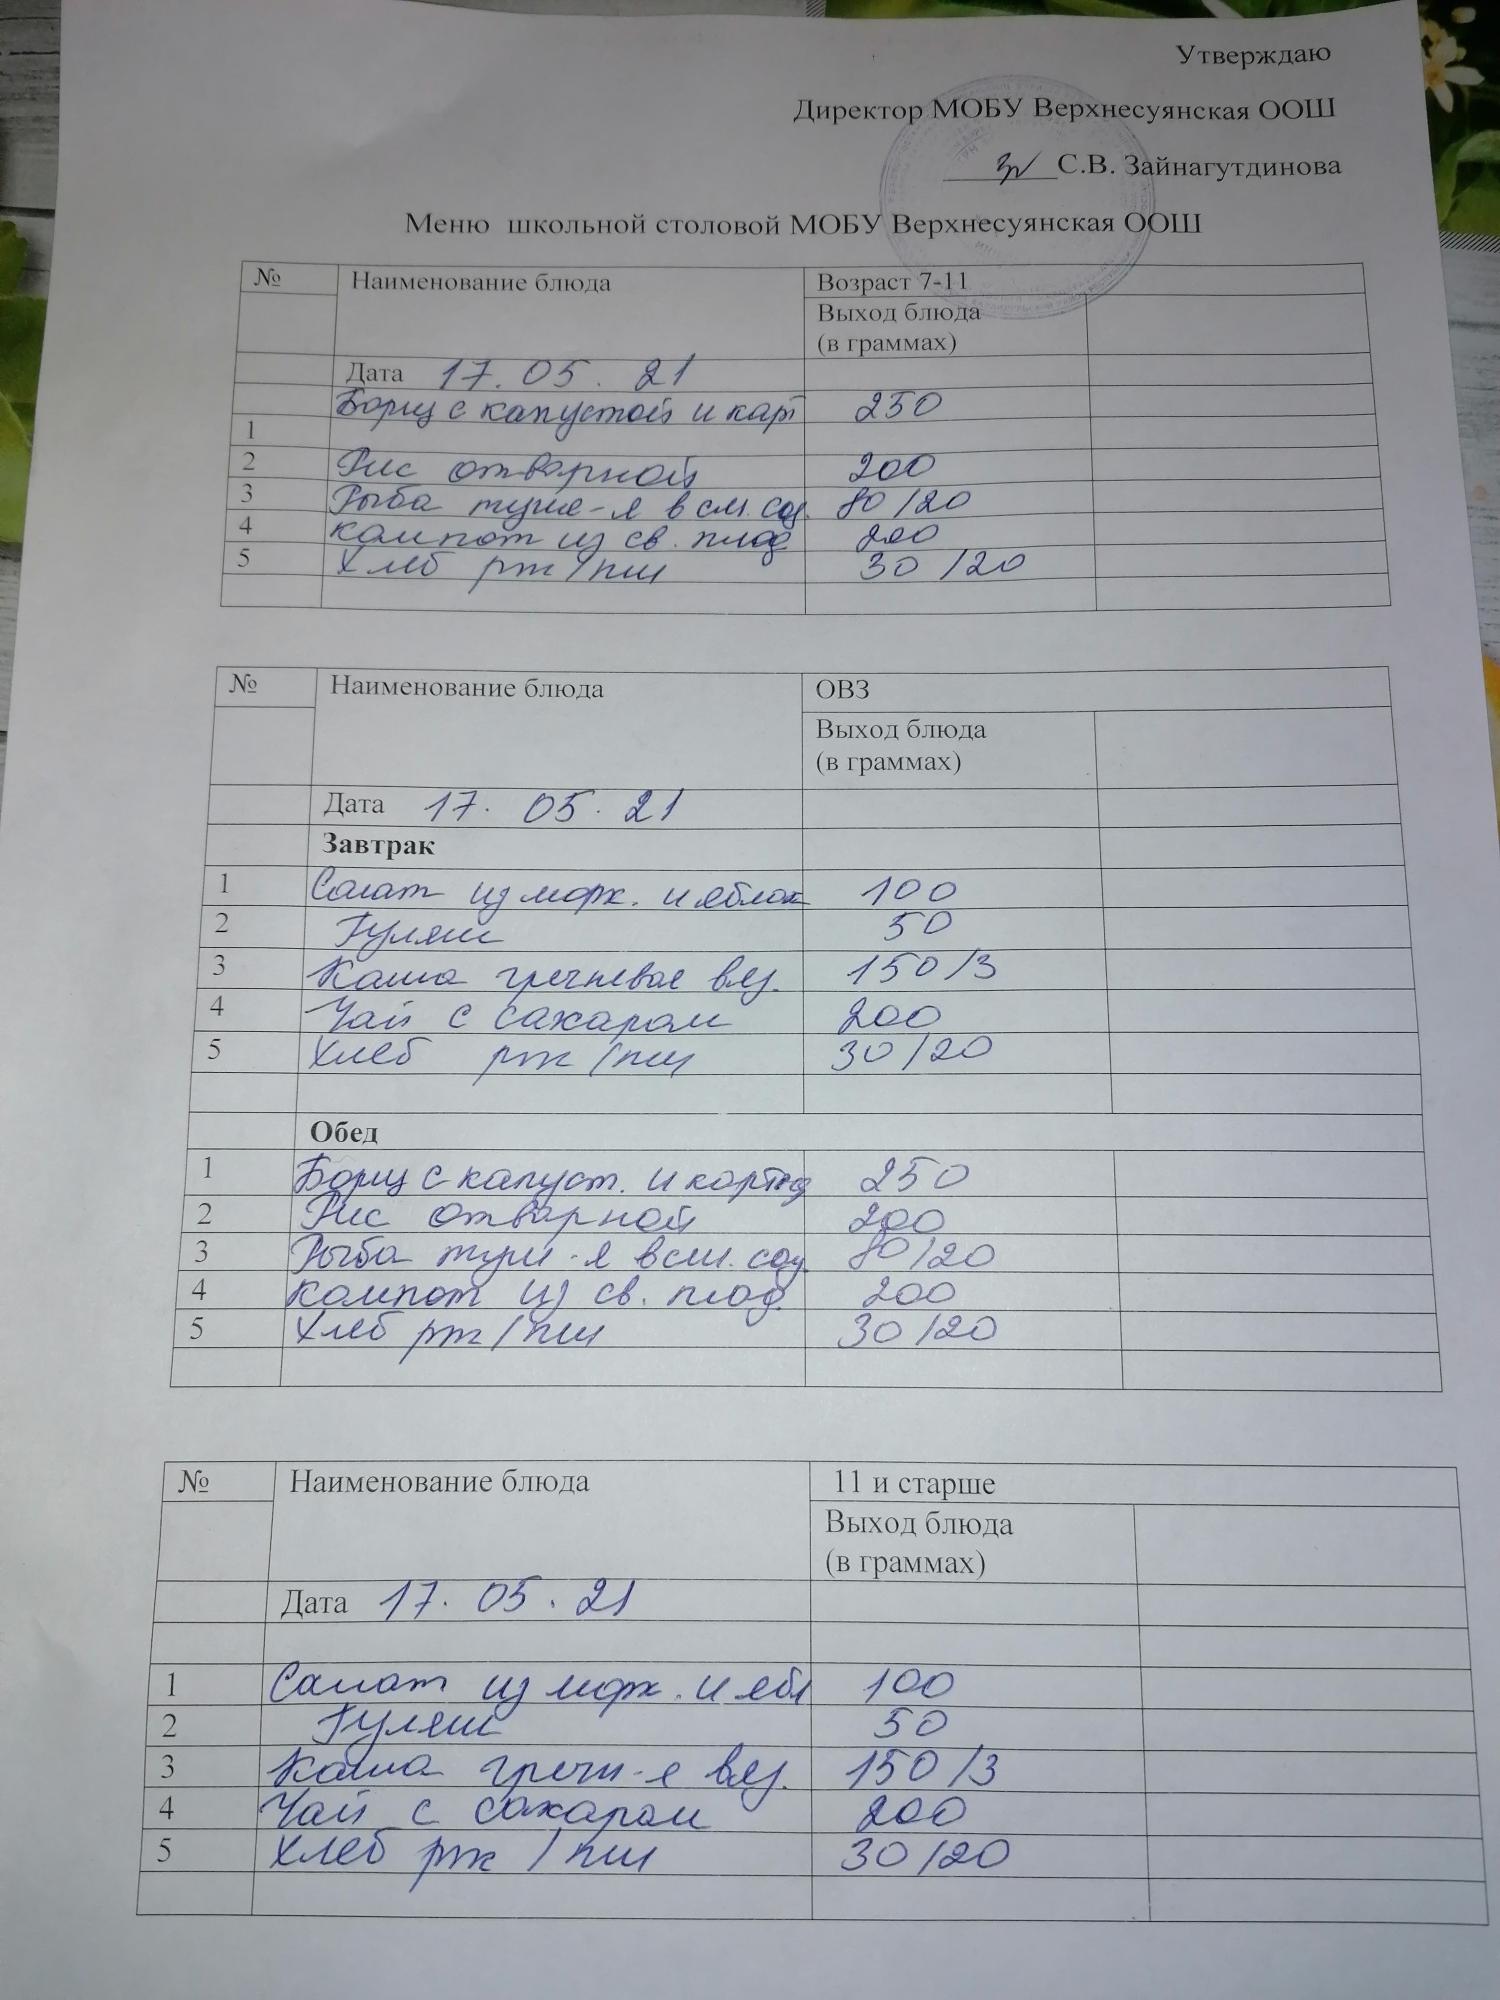 Утверждаю
Директор МОБУ Верхнесуянская ООШ
С.В. Зайнагутдинова
Меню школьной столовой МОБУ Верхнесуянская ООШ
№ Наименование блюда Возраст 7-11
Выход блюда
(в граммах)
Дата 17.05.21
Борщ с капустой и карт 250
1
2 Рис отварной 200
3 Рыба туше-я в см. соу. 80/20
4 Компот из св. плод 200
5 Хлеб рж/пш 30/20
№ Наименование блюда ОВЗ
Выход блюда
(в граммах)
Дата 17.05.21
Завтрак
1 Салат из морк. и яблок 100
2 Гуляш 50
3 Каша гречневая вяз. 150/3
4 Чай с сахаром 200
5 Хлеб рж/пш 30/20
Обед
1 Борщ с капуст. и картоф 250
2 Рис отварной 200
3 Рыба туш-я в см. соу. 80/20
4 Компот из св. плод. 200
5 Хлеб рж/пш 30/20
№ Наименование блюда 11 и старше
Выход блюда
(в граммах)
Дата 17.05.21
1 Салат из морк. и ябл 100
2 Гуляш 50
3 Каша гречн-я вяз. 150/3
4 Чай с сахаром 200
5 Хлеб рж/пш 30/20